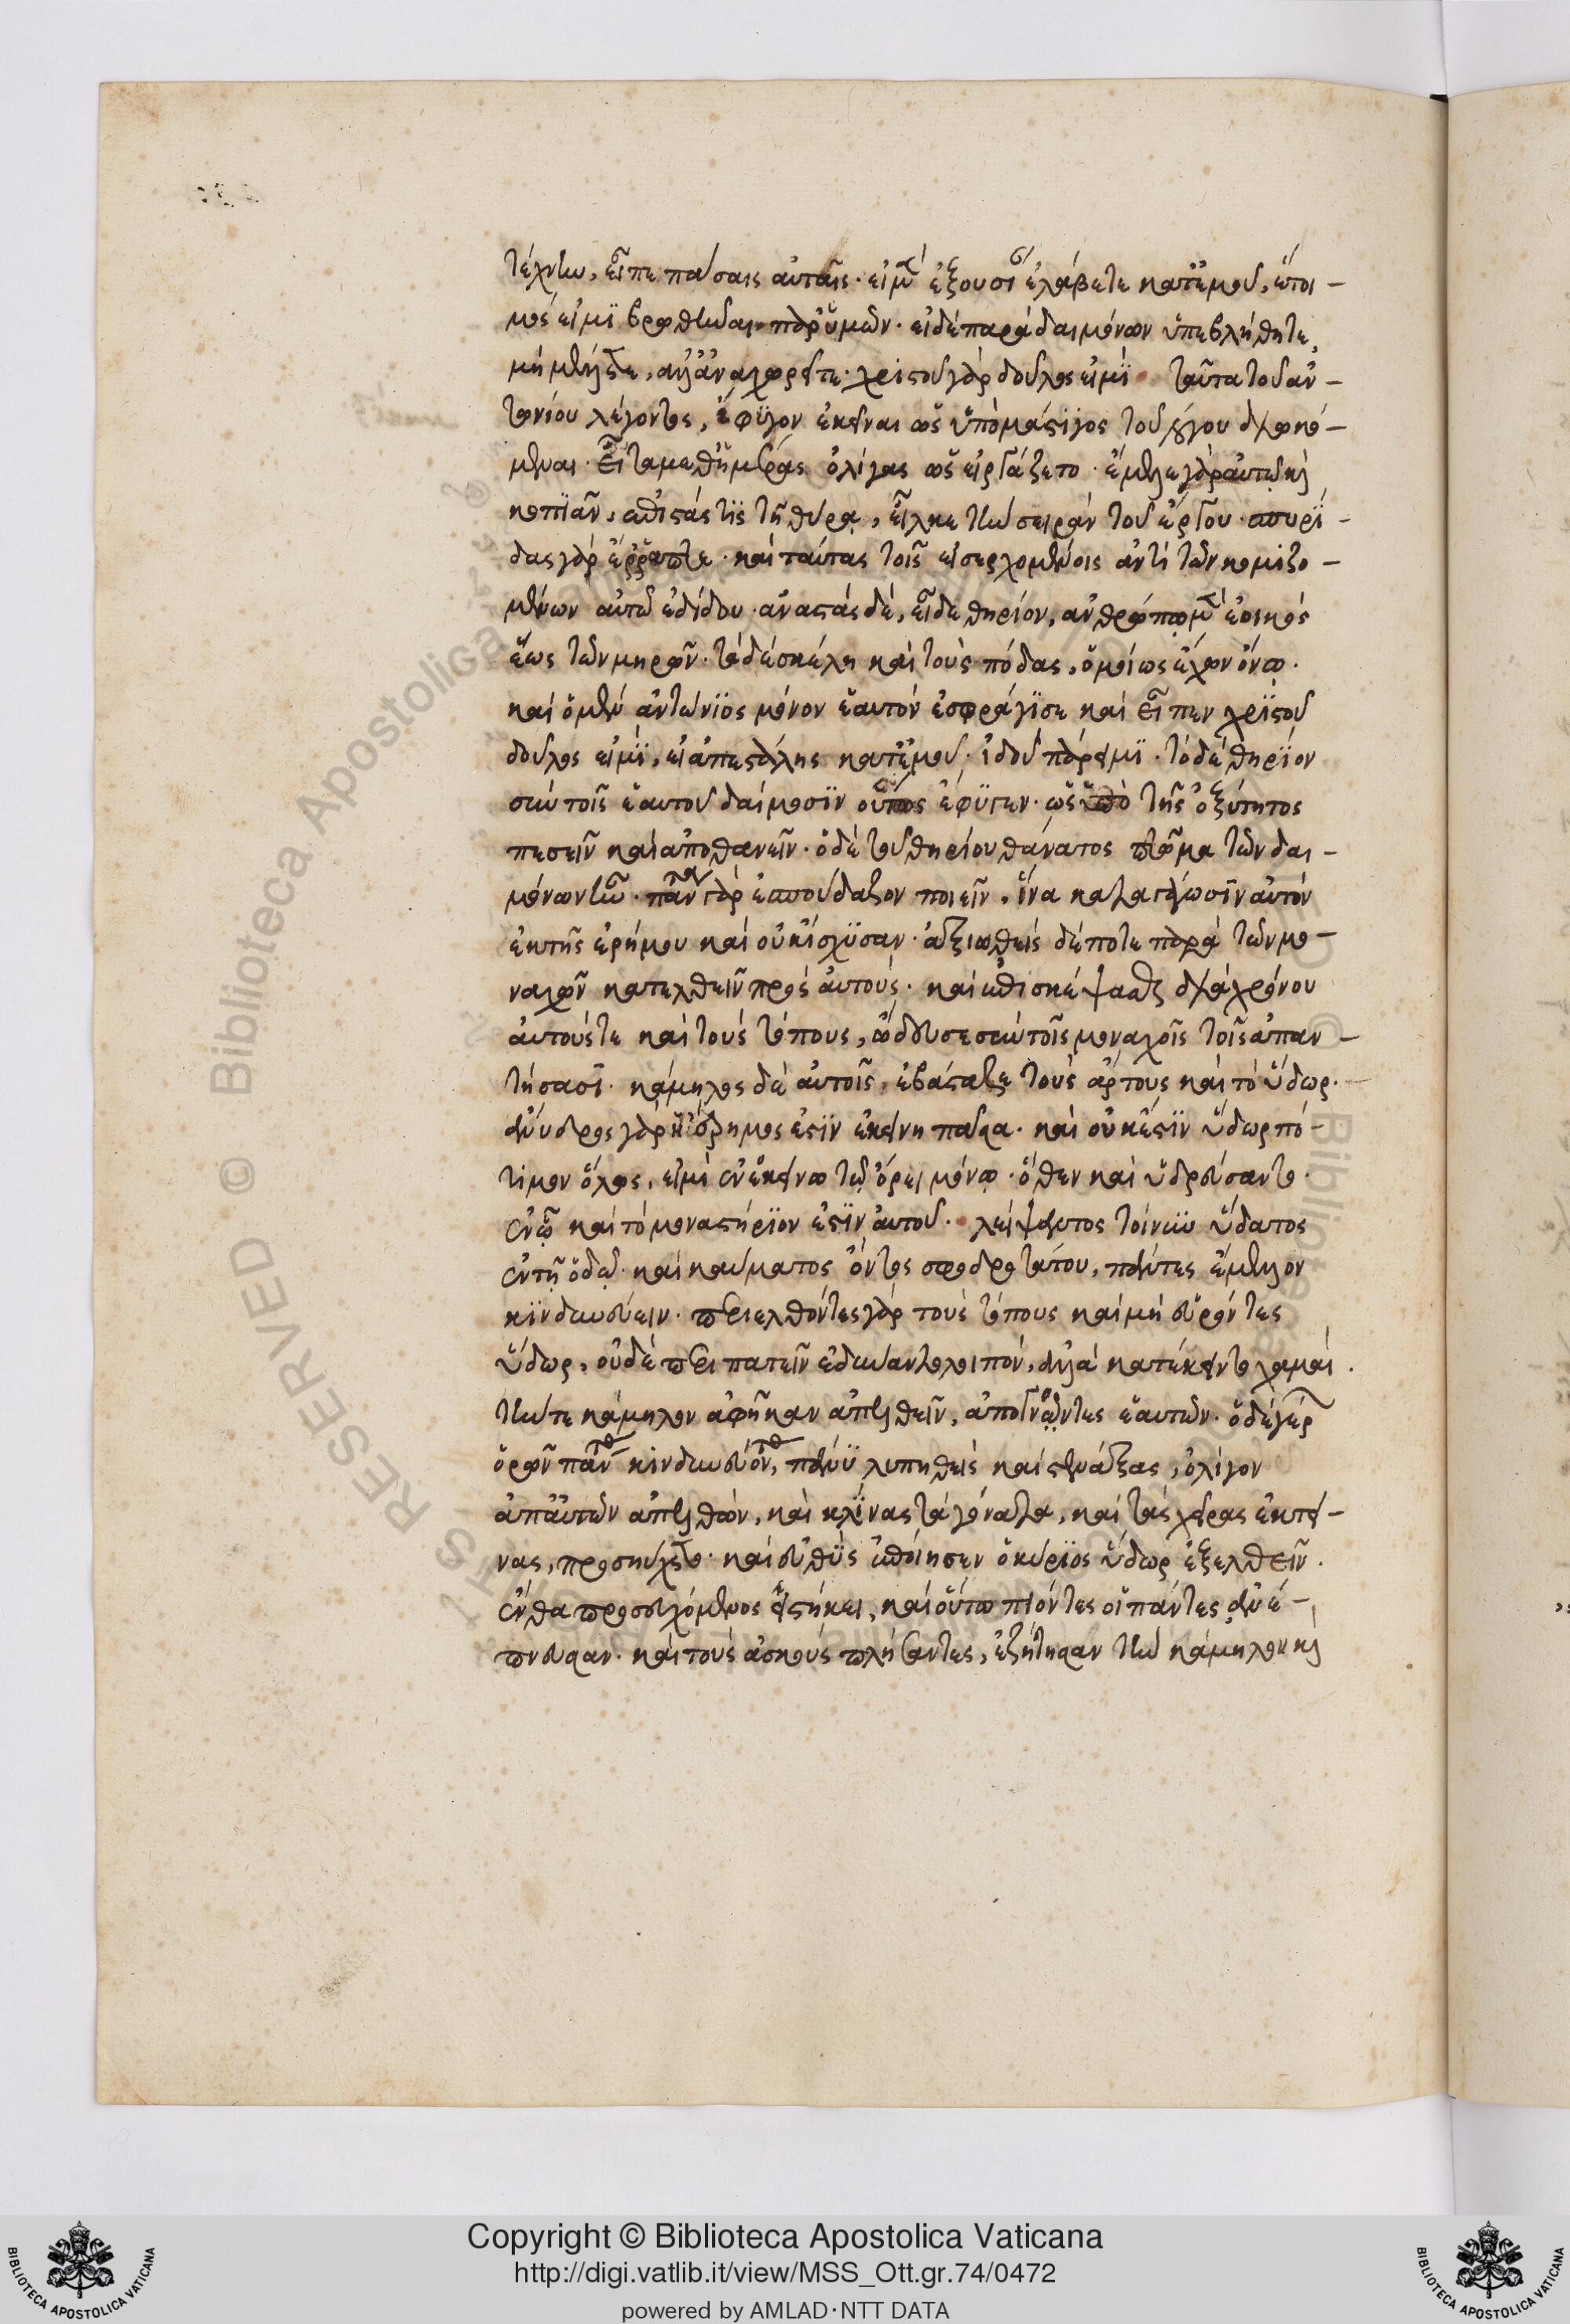 τέχνην, εἶπε πάσαις αὐταῖς· εἰ μὲν ἐξουσίαν ἐλάβετε κατ' ἐμοῦ, ἕτοι-
μός εἰμι βρωθῆναι παρ' ὑμῶν· εἰ δὲ παρὰ δαιμόνων ὑπεβλήθητε,
μὴ μέλλετε, ἀλλ' ἀναχωρεῖτε· χριστοῦ γὰρ δοῦλος εἰμί. ταῦτα τοῦ ἀν-
τωνίου λέγοντος, ἔφυγον ἐκεῖναι ὡς ὑπὸ μάστιγος τοῦ λόγου διωκό-
μεναι. Εἶτα μεθ' ἡμέρας ὀλίγας ὡς εἰργάζετο· ἔμελε γὰρ αὐτῷ καὶ
κοπιᾶν, ἐπιστάς τις τῇ θύρᾳ, εἷλκε τὴν σειρὰν τοῦ ἔργου· σπυρί-
δας γὰρ ἔρραπτε· καὶ ταύτας τοῖς εἰσερχομένοις ἀντὶ τῶν κομιζο-
μένων αὐτῷ ἐδίδου· ἀναστὰς δὲ, εἶδε θηρίον, ἀνθρώπῳ μὲν ἐοικὸς
ἕως τῶν μηρῶν· τὰ δὲ σκέλη καὶ τοὺς πόδας, ὁμοίως ἔχων ὄνῳ.
καὶ ὁ μὲν ἀντώνιος μόνον ἑαυτὸν ἐσφράγισε καὶ εἶπεν χριστοῦ
δοῦλος εἰμί, εἰ ἀπεστάλης κατ' ἐμοῦ· ἰδοὺ πάρειμι· τὸ δὲ θηρίον
σὺν τοῖς ἑαυτοῦ δαίμοσιν οὕτως ἔφυγεν· ὡς ὑπὸ τῆς ὀξύτητος
πεσεῖν καὶ ἀποθανεῖν· ὁ δὲ τοῦ θηρίου θάνατος πτῶμα τῶν δαι-
μόνων ἦν· πάντα γὰρ ἐσπούδαζον ποιεῖν, ἵνα καταγάγωσιν αὐτὸν
ἐκ τῆς ἐρήμου καὶ οὐκ ἴσχυσαν· ἀξιωθεὶς δέ ποτε παρὰ τῶν μο-
ναχῶν κατελθεῖν πρὸς αὐτούς· καὶ ἐπισκέψασθαι διὰ χρόνου
αὐτούς τε καὶ τοὺς τόπους, ὥδευσε σὺν τοῖς μοναχοῖς τοῖς ἀπαν-
τήσασι· κάμηλος δὲ αὐτοῖς, ἐβάσταζε τοὺς ἄρτους καὶ τὸ ὕδωρ.
ἄνυδρος γὰρ καὶ ἔρημος ἐστὶν ἐκείνη πᾶσα· καὶ οὐκ ἔστιν ὕδωρ πό-
τιμον ὅλως, εἰ μὴ ἐν ἐκείνῳ τῷ ὄρει μόνῳ· ὅθεν καὶ ὑδρεύσαντο·
ἐν ᾧ καὶ τὸ μοναστήριον ἐστὶν αὐτοῦ. λείψαντος τοίνυν ὕδατος
ἐν τῇ ὁδῷ· καὶ καύματος ὄντος σφοδροτάτου, πάντες ἔμελλον
κινδυνεύειν· περιελθόντες γὰρ τοὺς τόπους καὶ μὴ εὑρόντες
ὕδωρ, οὐδὲ περιπατεῖν ἐδύναντο λοιπόν, ἀλλὰ κατέκειντο χαμαί.
τήν τε κάμηλον ἀφῆκαν ἀπελθεῖν, ἀπογνόντες ἑαυτῶν· ὁ δὲ γέρων
ὁρῶν πάντας κινδυνεύοντας, πάνυ λυπηθεὶς καὶ στενάξας, ὀλίγον
ἀπ' αὐτῶν ἀπελθὼν, καὶ κλίνας τὰ γόνατα, καὶ τὰς χεῖρας ἐκτεί-
νας, προσηύχετο· καὶ εὐθὺς ἐποίησεν ὁ κύριος ὕδωρ ἐξελθεῖν.
ἔνθα προσευχόμενος εἱστήκει, καὶ οὕτω πιόντες οἱ πάντες ἀνέ-
πνευσαν· καὶ τοὺς ἀσκοὺς πλήσαντες, ἐζήτησαν τὴν κάμηλον καὶ
Copyright © Biblioteca Apostolica Vaticana
http://digi.vatlib.it/view/MSS_Ott.gr.74/0472
powered by AMLAD·NTT DATA